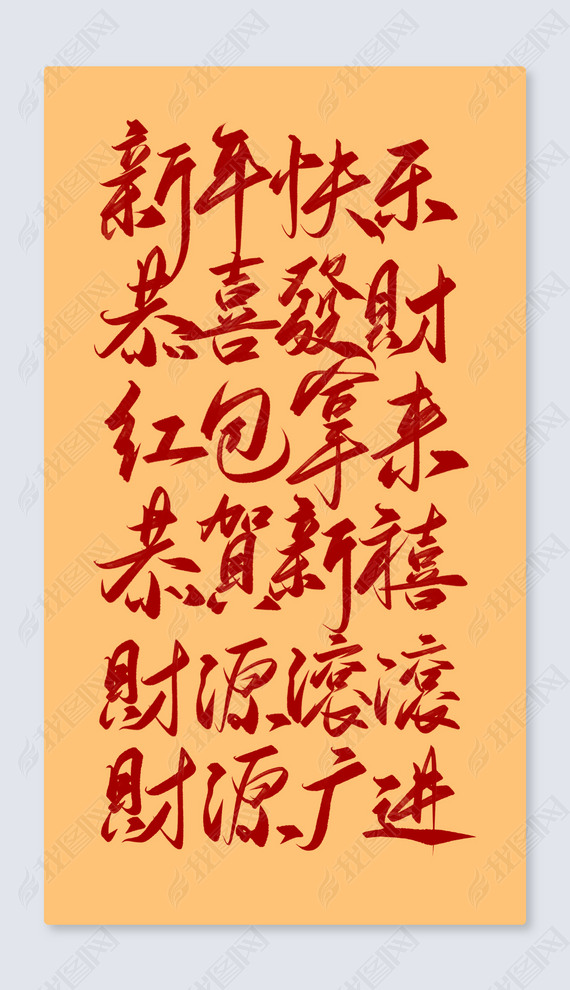 新年快乐
恭喜發財
红包拿来
恭贺新禧
財源滾滾
財源广进